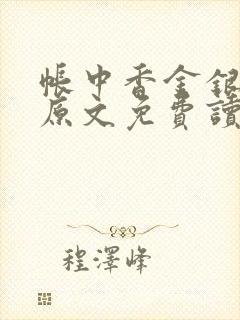 帳中香金銀
原文免費讀
程澤峰